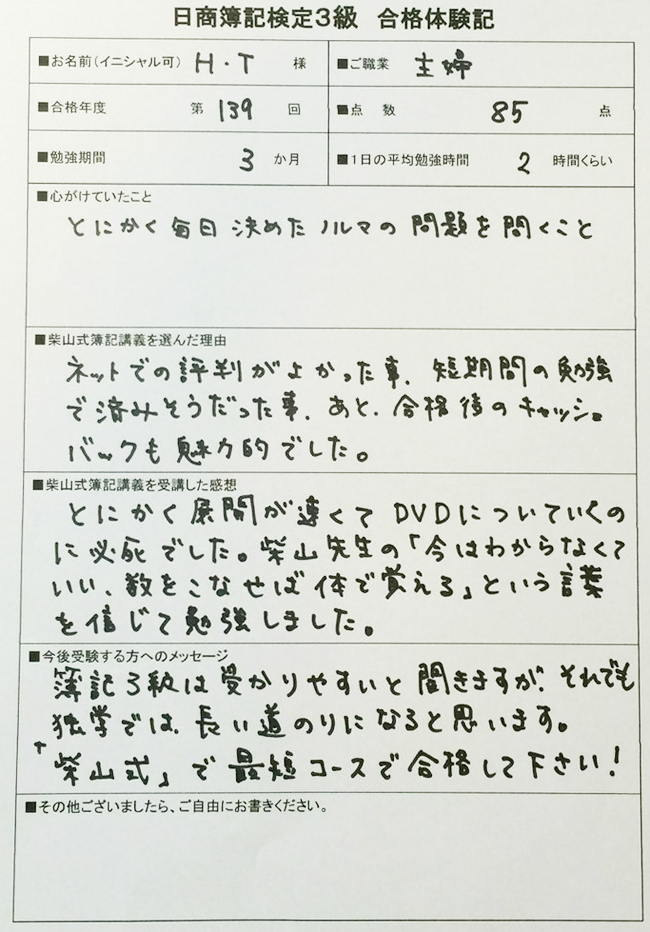 日商簿記検定3級 合格体験記
■お名前(イニシャル可) H・T 様 ■ご職業 主婦
■合格年度 第 139 回 ■点数 85 点
■勉強期間 3 か月 ■1日の平均勉強時間 2 時間くらい
■心がけていたこと
とにかく毎日決めたノルマの問題を問くこと
■柴山式簿記講義を選んだ理由
ネットでの評判がよかった事、短期間の勉強
で済みそうだった事、あと、合格後のキャッシュ
バックも魅力的でした。
■柴山式簿記講義を受講した感想
とにかく展開が速くてDVDについていくの
に必死でした。柴山先生の「今はわからなくて
いい、数をこなせば体で覚える」という言葉
を信じて勉強しました。
■今後受験する方へのメッセージ
簿記3級は受かりやすいと聞きますが、それでも
独学では、長い道のりになると思います。
「柴山式」で最短コースで合格して下さい!
■その他ございましたら、ご自由にお書きください。